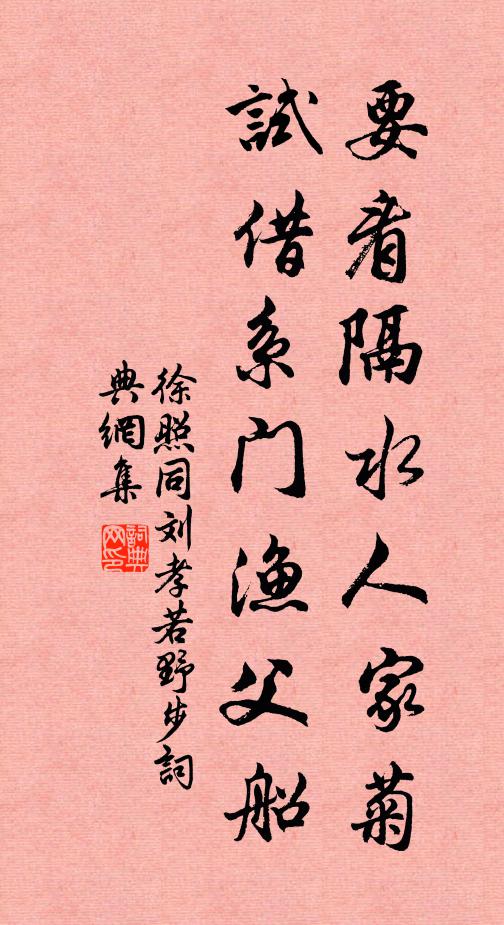 要看隔水人家菊
試借系门漁父船
徐照同刘孝若野步詞
典網集
詞典
网印